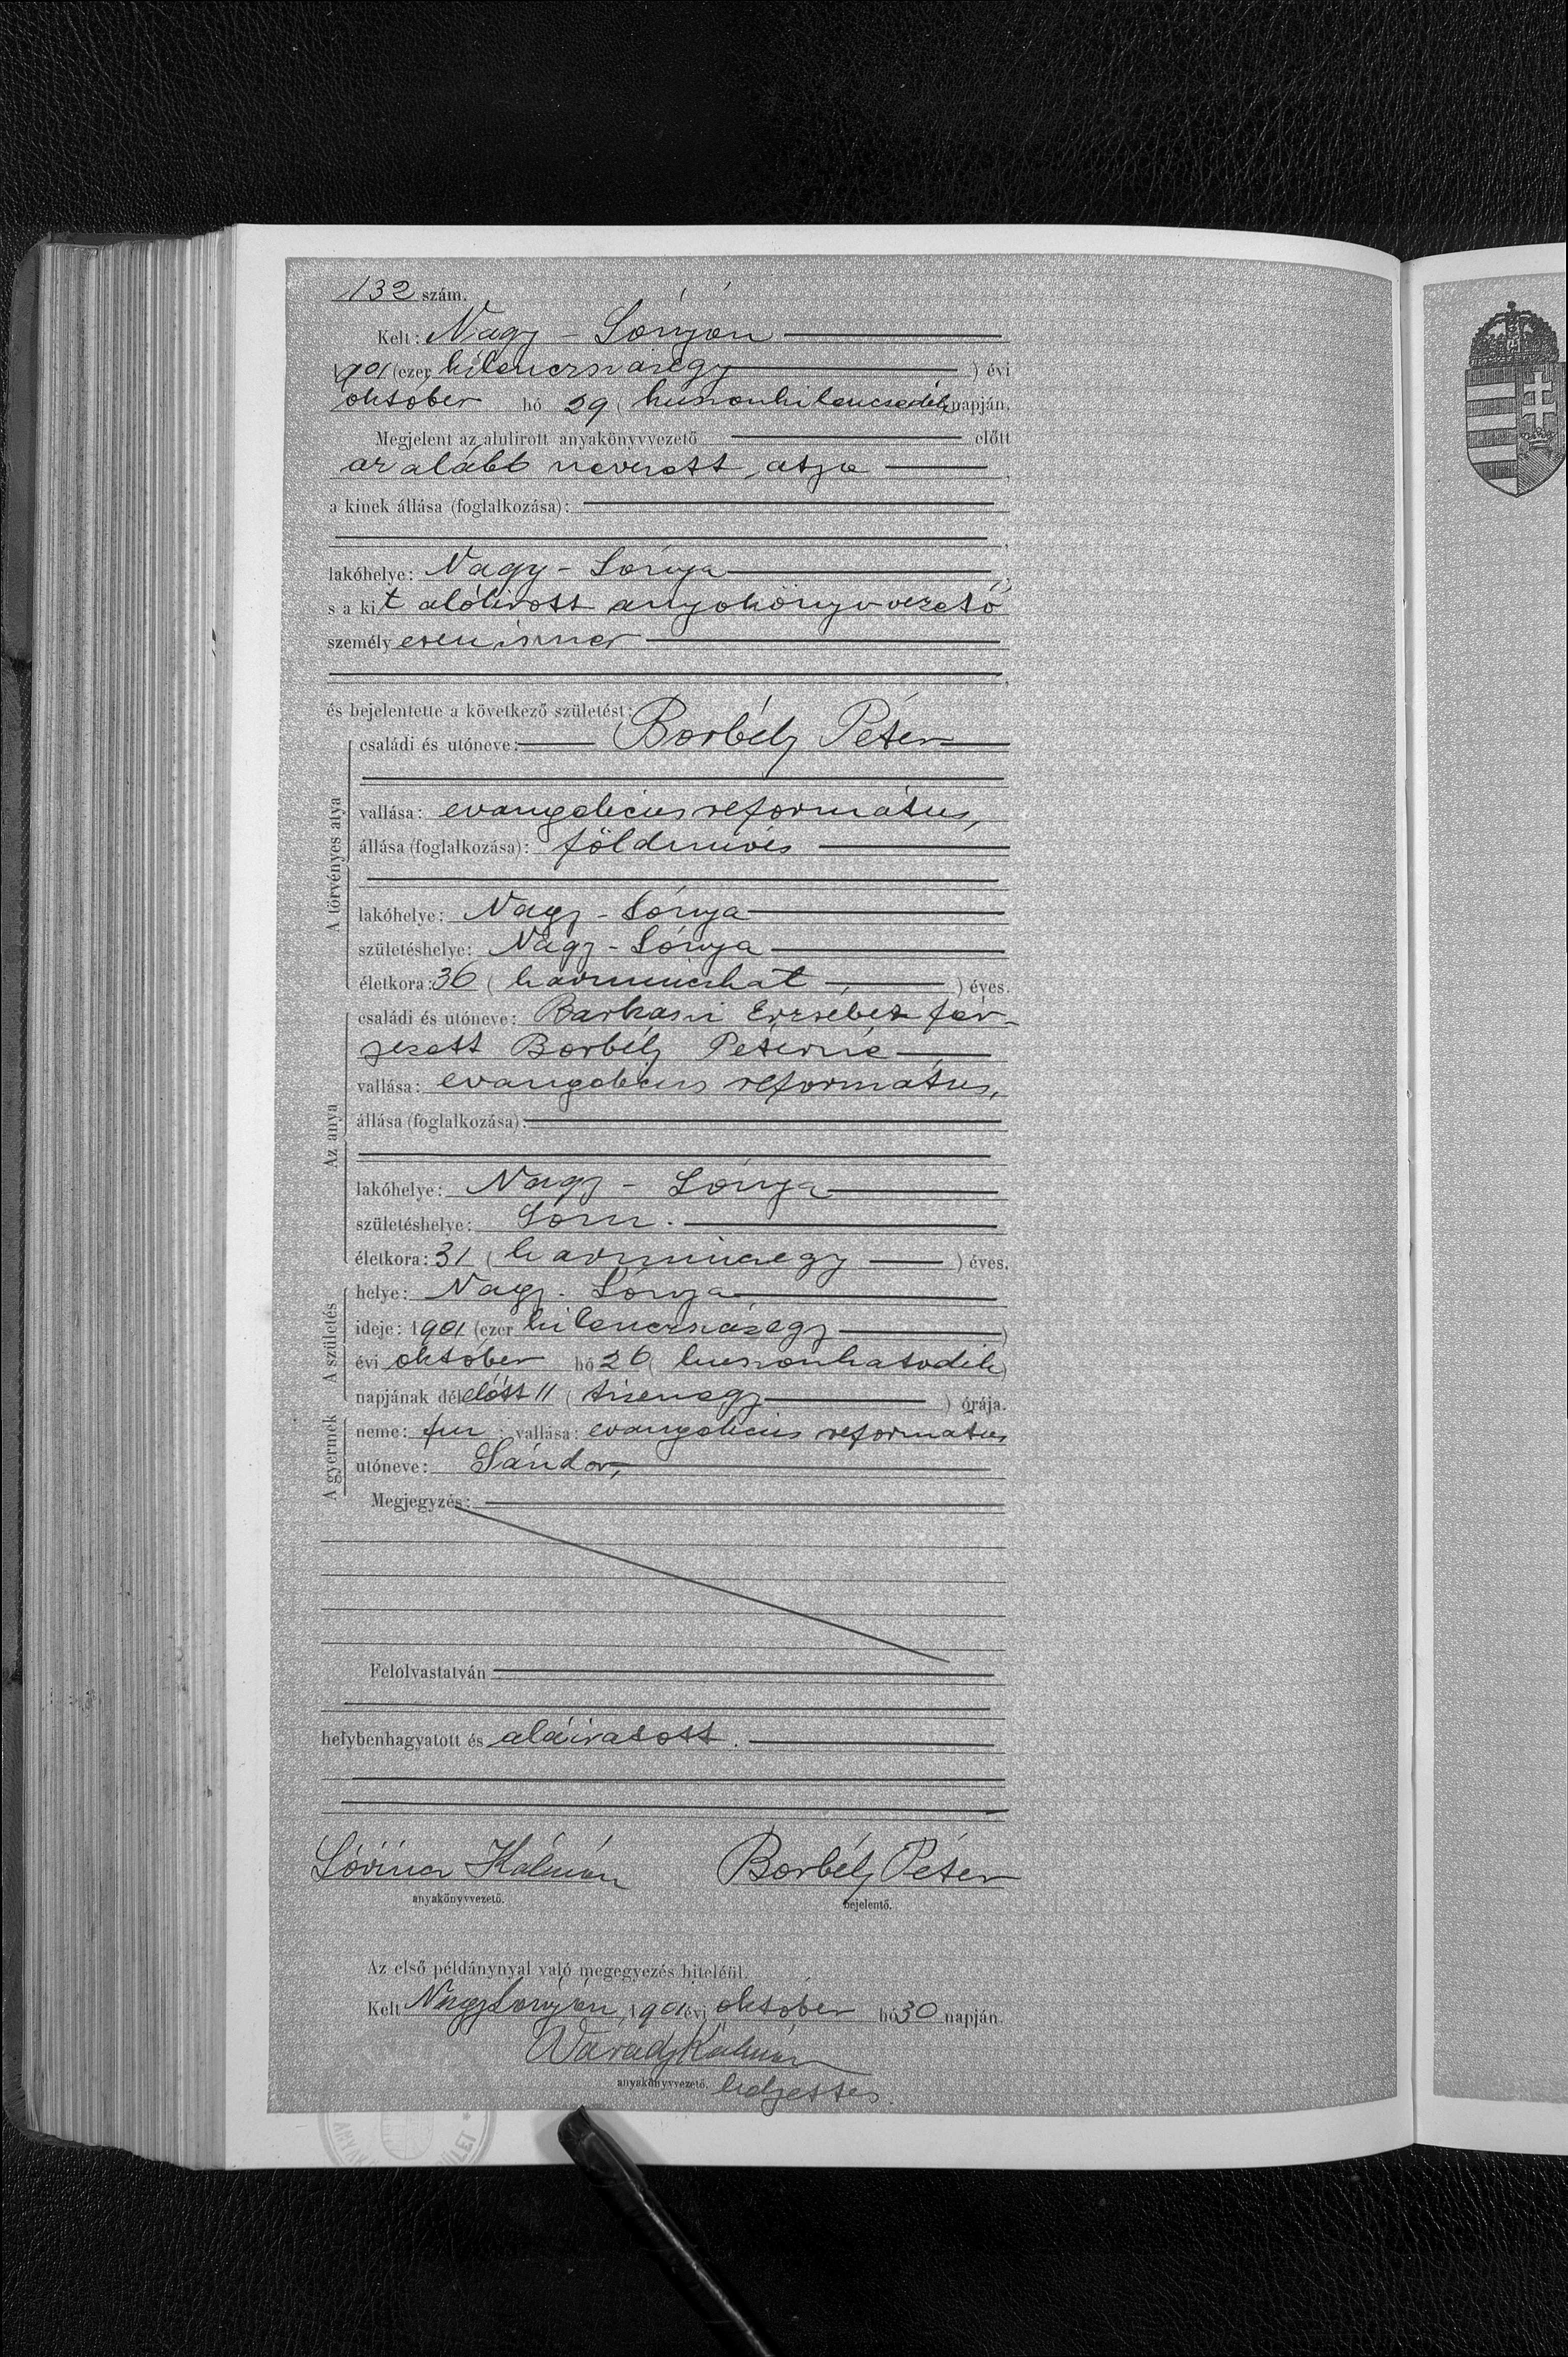 132 szám.
Kelt: Nagy-Lónyán
1901 (ezer kilenczszázegy) évi
október hó 29 (huszonkilenczedik) napján.
Megjelent az alulirott anyakönyvvezető előtt
az alább nevezett atya,
a kinek állása (foglalkozása):
lakóhelye: Nagy-Lónya,
s a kit alólirott anyakönyvvezető
személyesen ismer
és bejelentette a következő születést:
A törvényes atya
családi és utóneve: Borbély Péter
vallása: evangelicus református,
állása (foglalkozása): földmivés
lakóhelye: Nagy-Lónya
születéshelye: Nagy-Lónya
életkora: 36 (harminczhat) éves.
Az anya
családi és utóneve: Barkaszi Erzsébet fér-
jezett Borbély Péterné
vallása: evangelicus református,
állása (foglalkozása):
lakóhelye: Nagy-Lónya
születéshelye:
életkora: 31 (harminczegy) éves.
A születés
helye: Nagy-Lónya
ideje: 1901 (ezer kilenczszázegy)
évi október hó 26 (huszonhatodik)
napjának délelőtt 11 (tizenegy) órája.
A gyermek
neme: fiu; vallása: evangelicus református
utóneve: Sándor,
Megjegyzés:
Felolvastatván
helybenhagyatott és aláiratott.
Kálmán Borbély Péter
anyakönyvvezető. bejelentő.
Az első példánynyal való megegyezés hiteléül.
Kelt Nagylónyán, 1901 évi október hó 30 napján.
Várady Kálmán
anyakönyvvezető. helyettes.